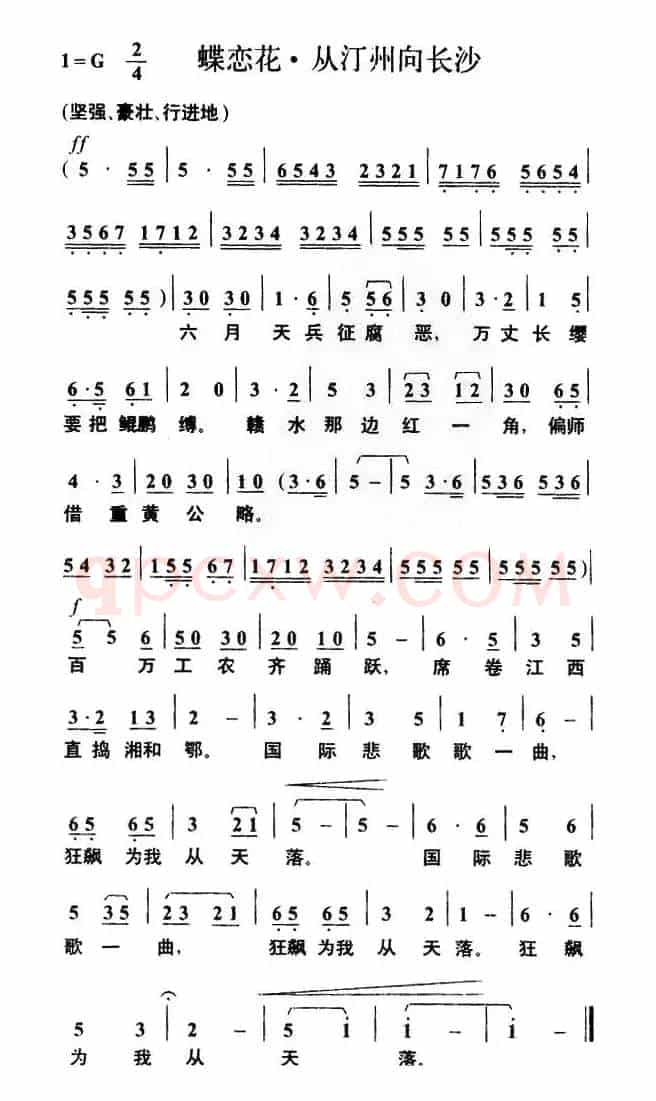 1=G 2/4 蝶恋花·从汀州向长沙
(坚强、豪壮、行进地)
ff
(5 · 55 | 5 · 55 | 6543 2321 | 7176 5654 |
3567 1712 | 3234 3234 | 555 55 | 555 55 |
555 55) | 30 30 | 1·6 | 5 56 | 30 | 3·2 | 1 5
六月天兵征腐恶,万丈长缨
6·5 61 | 2 0 | 3·2 | 5 3 | 23 12 | 30 65 |
要把鲲鹏缚。赣水那边红一角,偏师
4 · 3 | 20 30 | 10 (3·6 | 5 – | 5 3·6 | 536 536 |
借重黄公略。
54 32 | 155 67 | 1712 3234 | 555 55 | 555 55) |
qpcxw.COM
f
5 5 6 | 50 30 | 20 10 | 5 – | 6 · 6 | 3 5 |
百万工农齐踊跃,席卷江西
3·2 13 | 2 – | 3 · 2 | 3 5 | 1 7 | 6 – |
直捣湘和鄂。国际悲歌歌一曲,
65 65 | 3 21 | 5 – | 5 – | 6 · 6 | 5 6 |
狂飙为我从天落。国际悲歌
5 35 | 23 21 | 65 65 | 3 2 | 1 – | 6 · 6 |
歌一曲,狂飙为我从天落。狂飙
5 3 | 2 – | 5 i | i – | i – ‖
为我从天落。